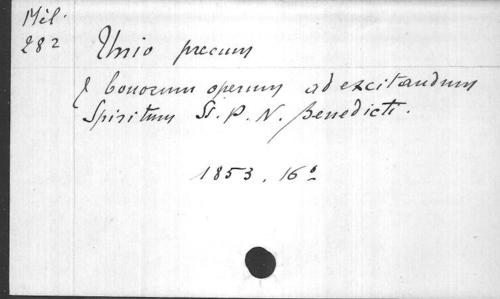 Mél.
282
Unio precum
& bonorum operum ad excitandum
Spiritum St. P. N. Benedicti.
1853. 16º